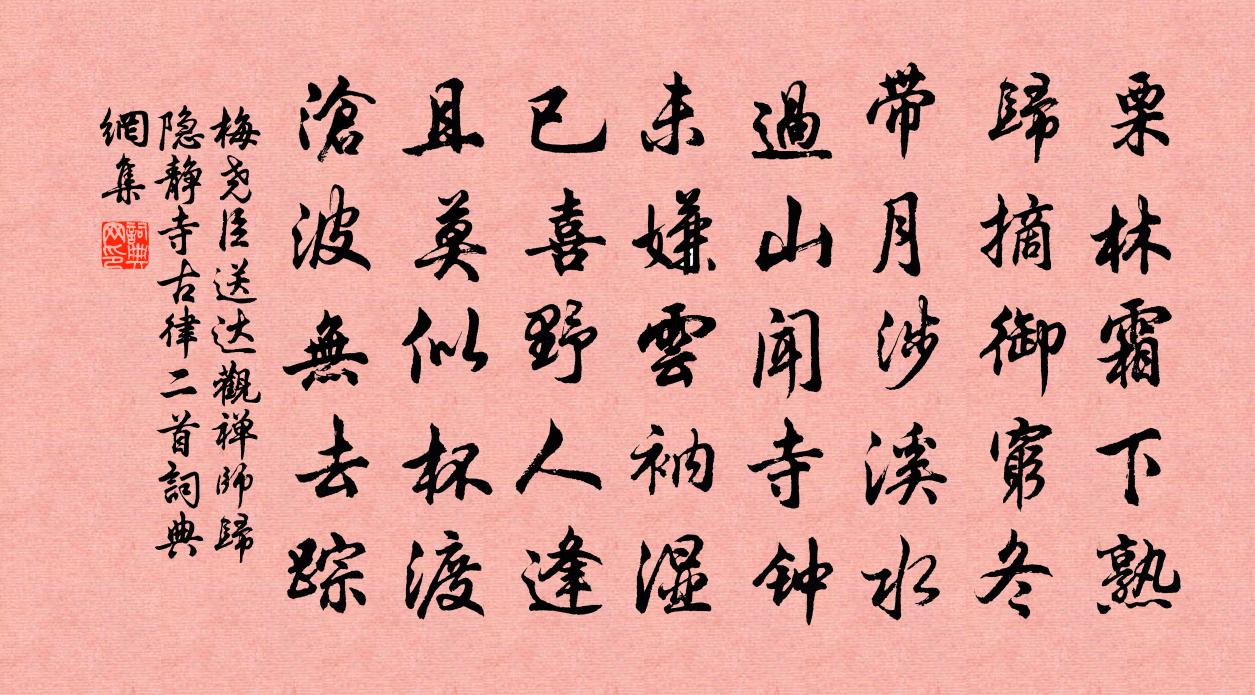 栗林霜下熟
歸摘御窮冬
带月涉溪水
過山聞寺钟
未嫌雲衲湿
已喜野人逢
且莫似杯渡
滄波無去踪
梅尧臣送达觀禅师歸
隐静寺古律二首詞典
網集
詞典
网印